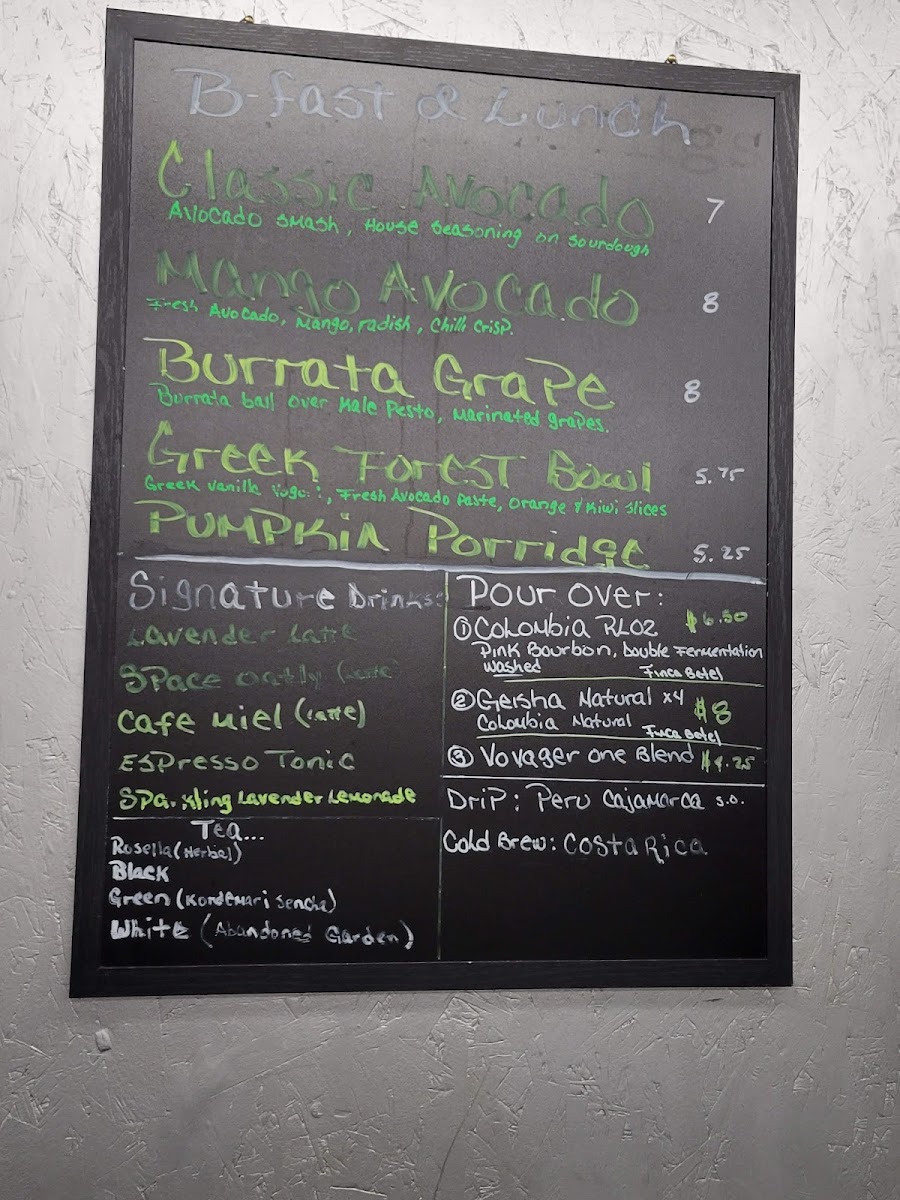 B-fast & Lunch
Classic Avocado 7
Avocado smash, House seasoning on sourdough
Mango Avocado 8
Fresh Avocado, Mango, radish, Chili Crisp.
Burrata Grape 8
Burrata ball over Kale Pesto, Marinated grapes.
Greek Forest Bowl 5.75
Greek vanilla, Fresh Avocado Paste, Orange & Kiwi slices
Pumpkin Porridge 5.25
Signature Drinks:
Lavender Latte
Space oatly (latte)
Cafe Miel (latte)
Espresso Tonic
Sparkling Lavender Lemonade
Tea...
Rosella (Herbal)
Black
Green (Kondemari Sencha)
White (Abandoned Garden)
Pour Over:
① Colombia RL02 $6.50
Pink Bourbon, Double Fermentation
washed Finca Betel
② Geisha Natural x4 $8
Colombia Natural Finca Betel
③ Voyager one Blend $4.25
Drip: Peru Cajamarca s.o.
Cold Brew: Costa Rica